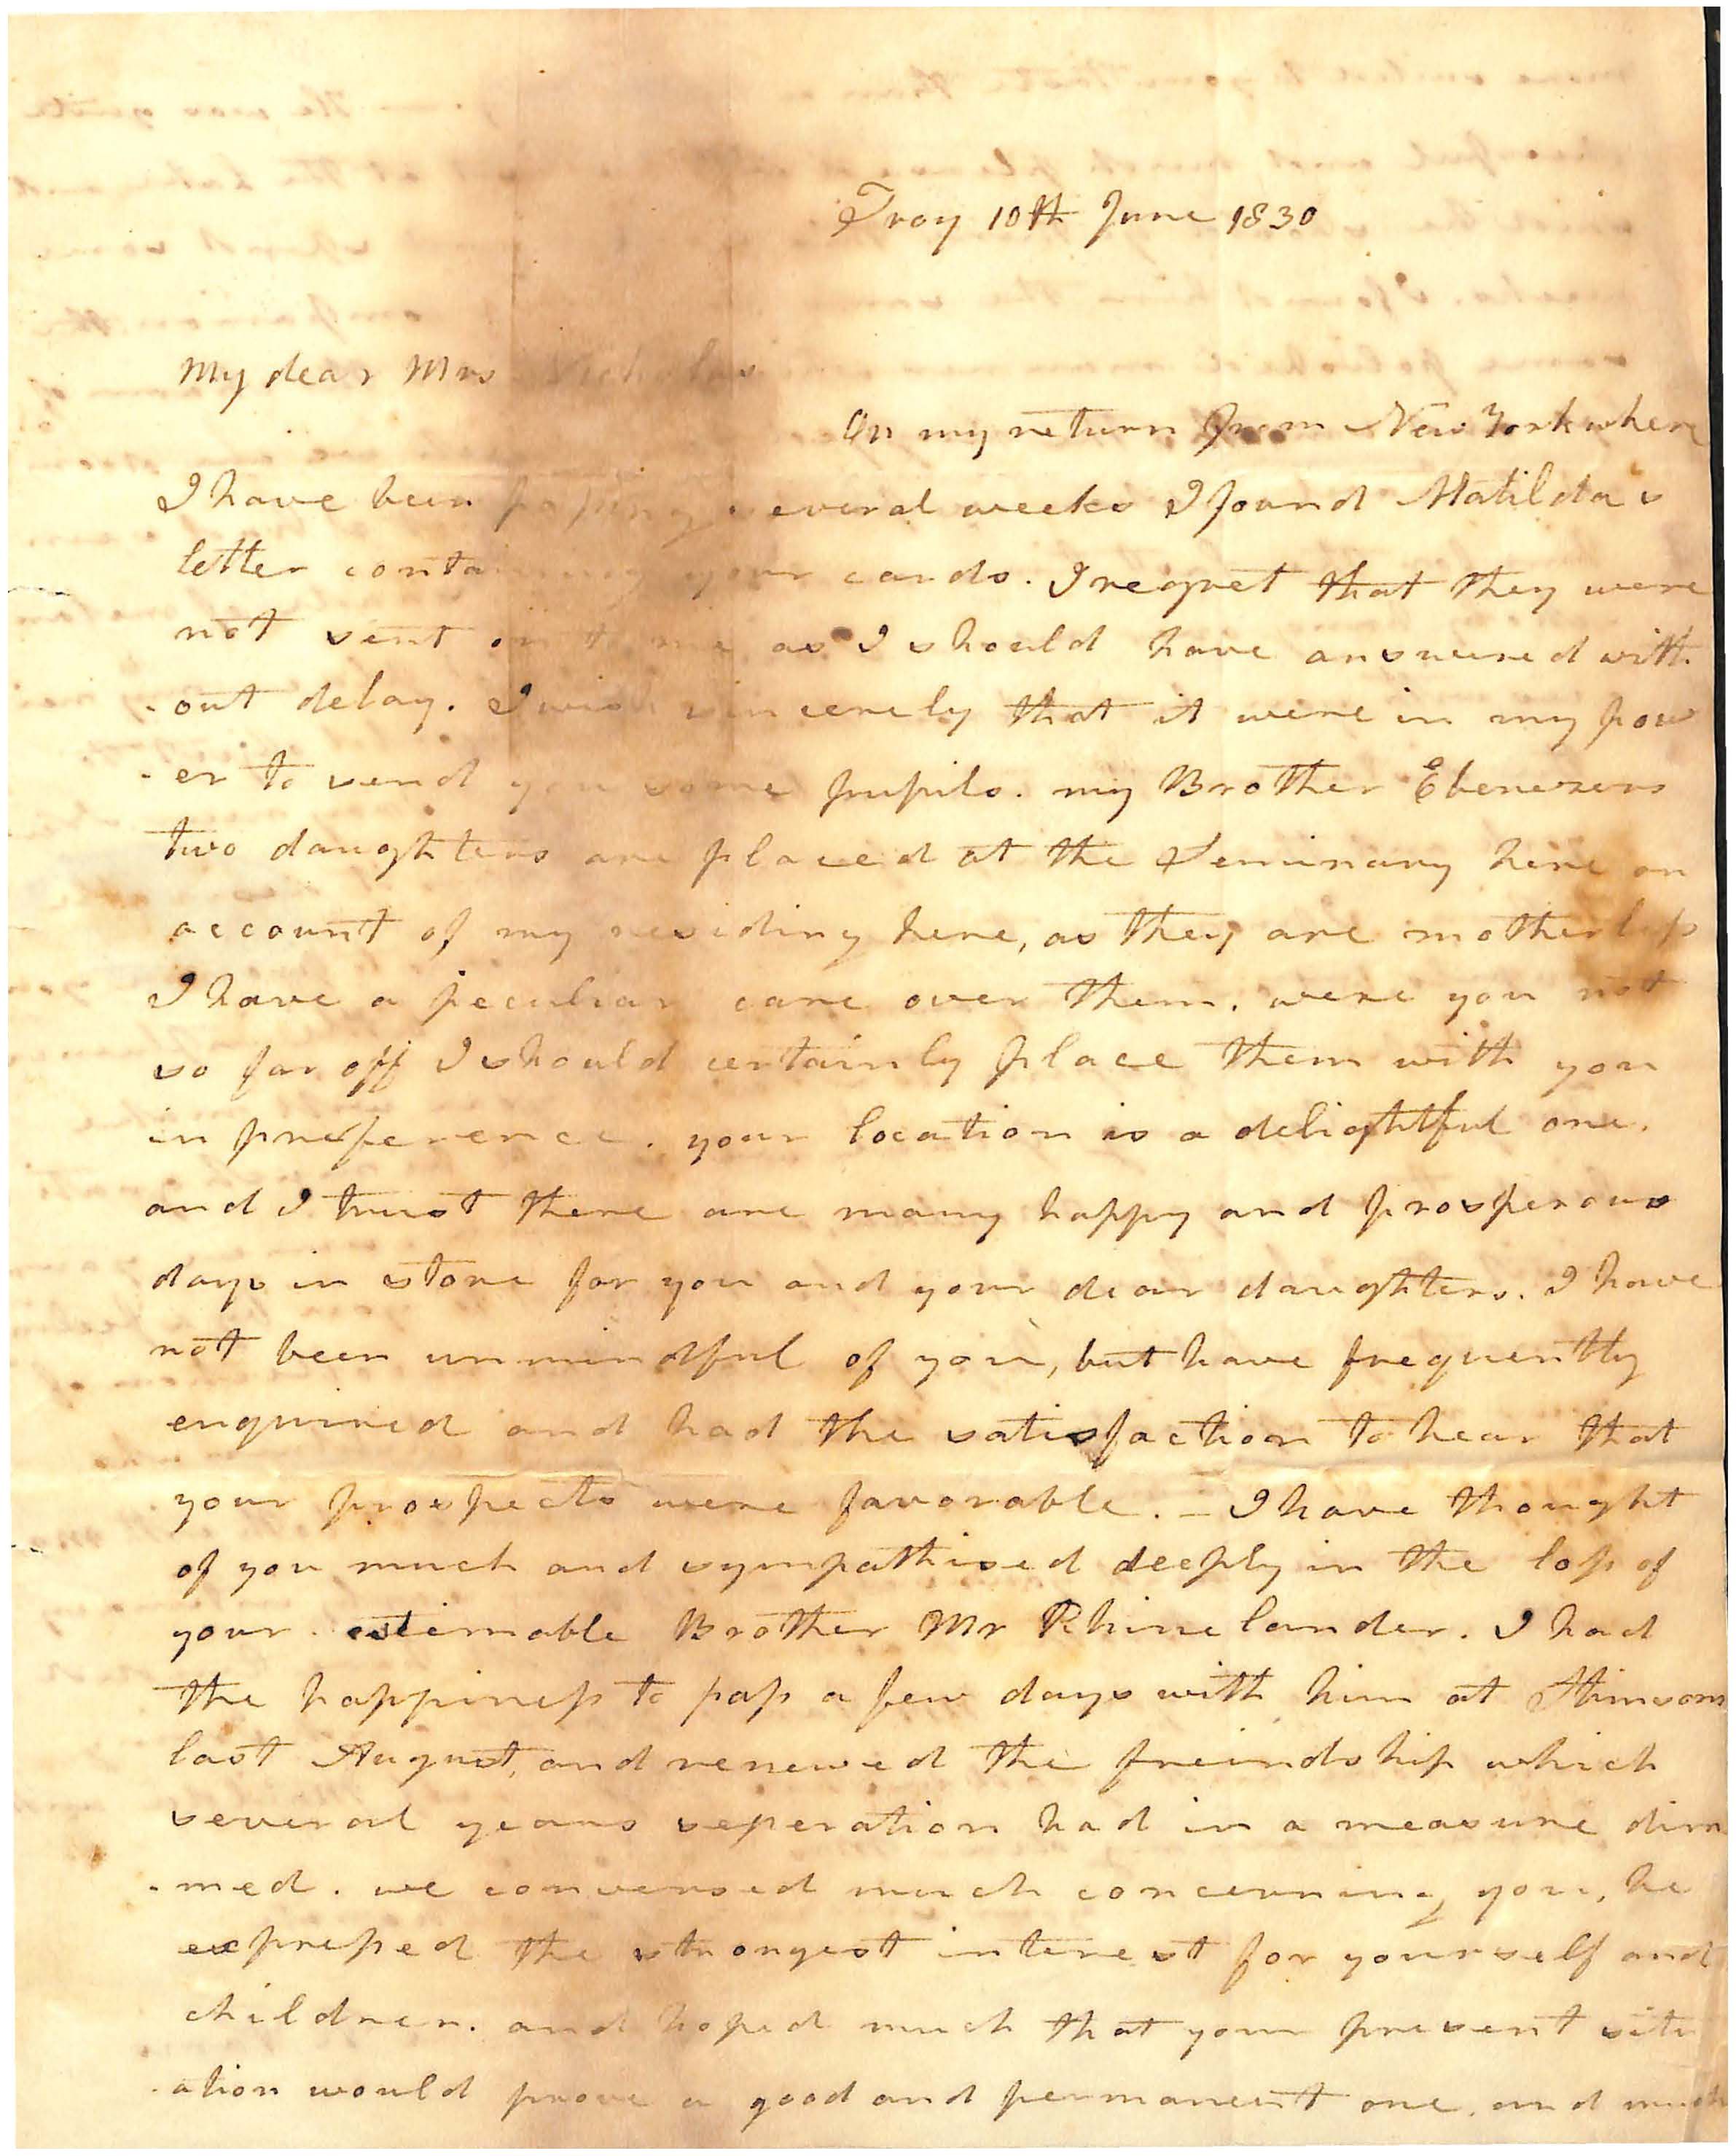 Troy 10th June 1830
My dear Mrs Nicholas
On my return from New York where
I have been passing several weeks I found Matildas
letter containing your cards. I regret that they were
not sent on to me as I should have answered with
-out delay. I wish sincerely that it were in my pow
-er to send you some pupils. my Brother Ebenezers
two daughters are placed at the Seminary here on
account of my residing here, as they are motherless
I have a peculiar care over them. were you not
so far off I should certainly place them with you
in preference. your location is a delightful one.
and I trust there are many happy and prosperous
days in store for you and your dear daughters. I have
not been unmindful of you, but have frequently
enquired and had the satisfaction to hear that
your prospects were favorable. - I have thought
of you much and sympathised deeply in the loss of
your estemable Brother Mr Rhinelander. I had
the happiness to pass a few days with him at Stimsons
last August, and renewed the freindship which
several years seperation had in a measure dim
-med. we conversed much concerning you, he
expressed the strongest interest for yourself and
children. and hoped much that your present situ
-ation would prove a good and permanent one. and much